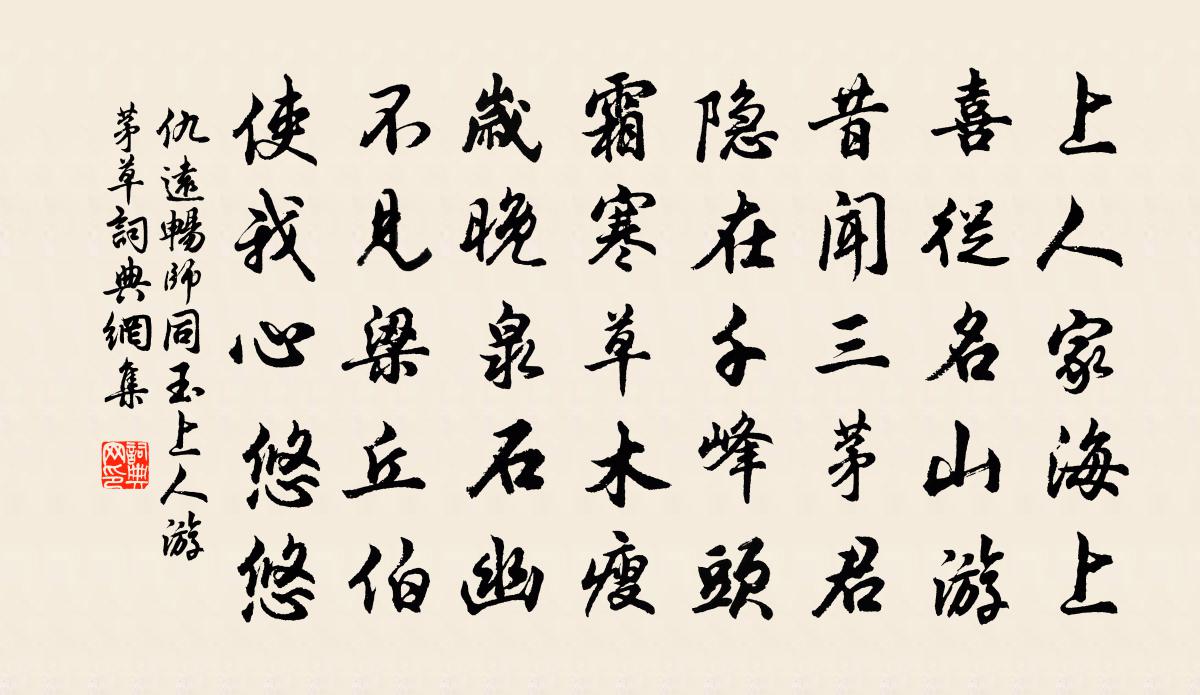 上人家海上
喜從名山游
昔聞三茅君
隐在千峰頭
霜寒草木瘦
歲晚泉石幽
不見梁丘伯
使我心悠悠
仇遠暢師同玉上人游
茅草詞典網集
詞典
网印